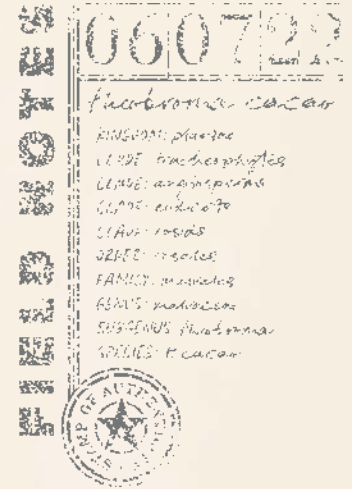 FIELD NOTES
060722
Theobroma cacao
KINGDOM: plantae
CLADE: tracheophytes
CLADE: angiosperms
CLADE: eudicots
CLADE: rosids
ORDER:
FAMILY:
GENUS:
SUBGENUS:
SPECIES: T. cacao
STAMP OF AUTHENTICITY